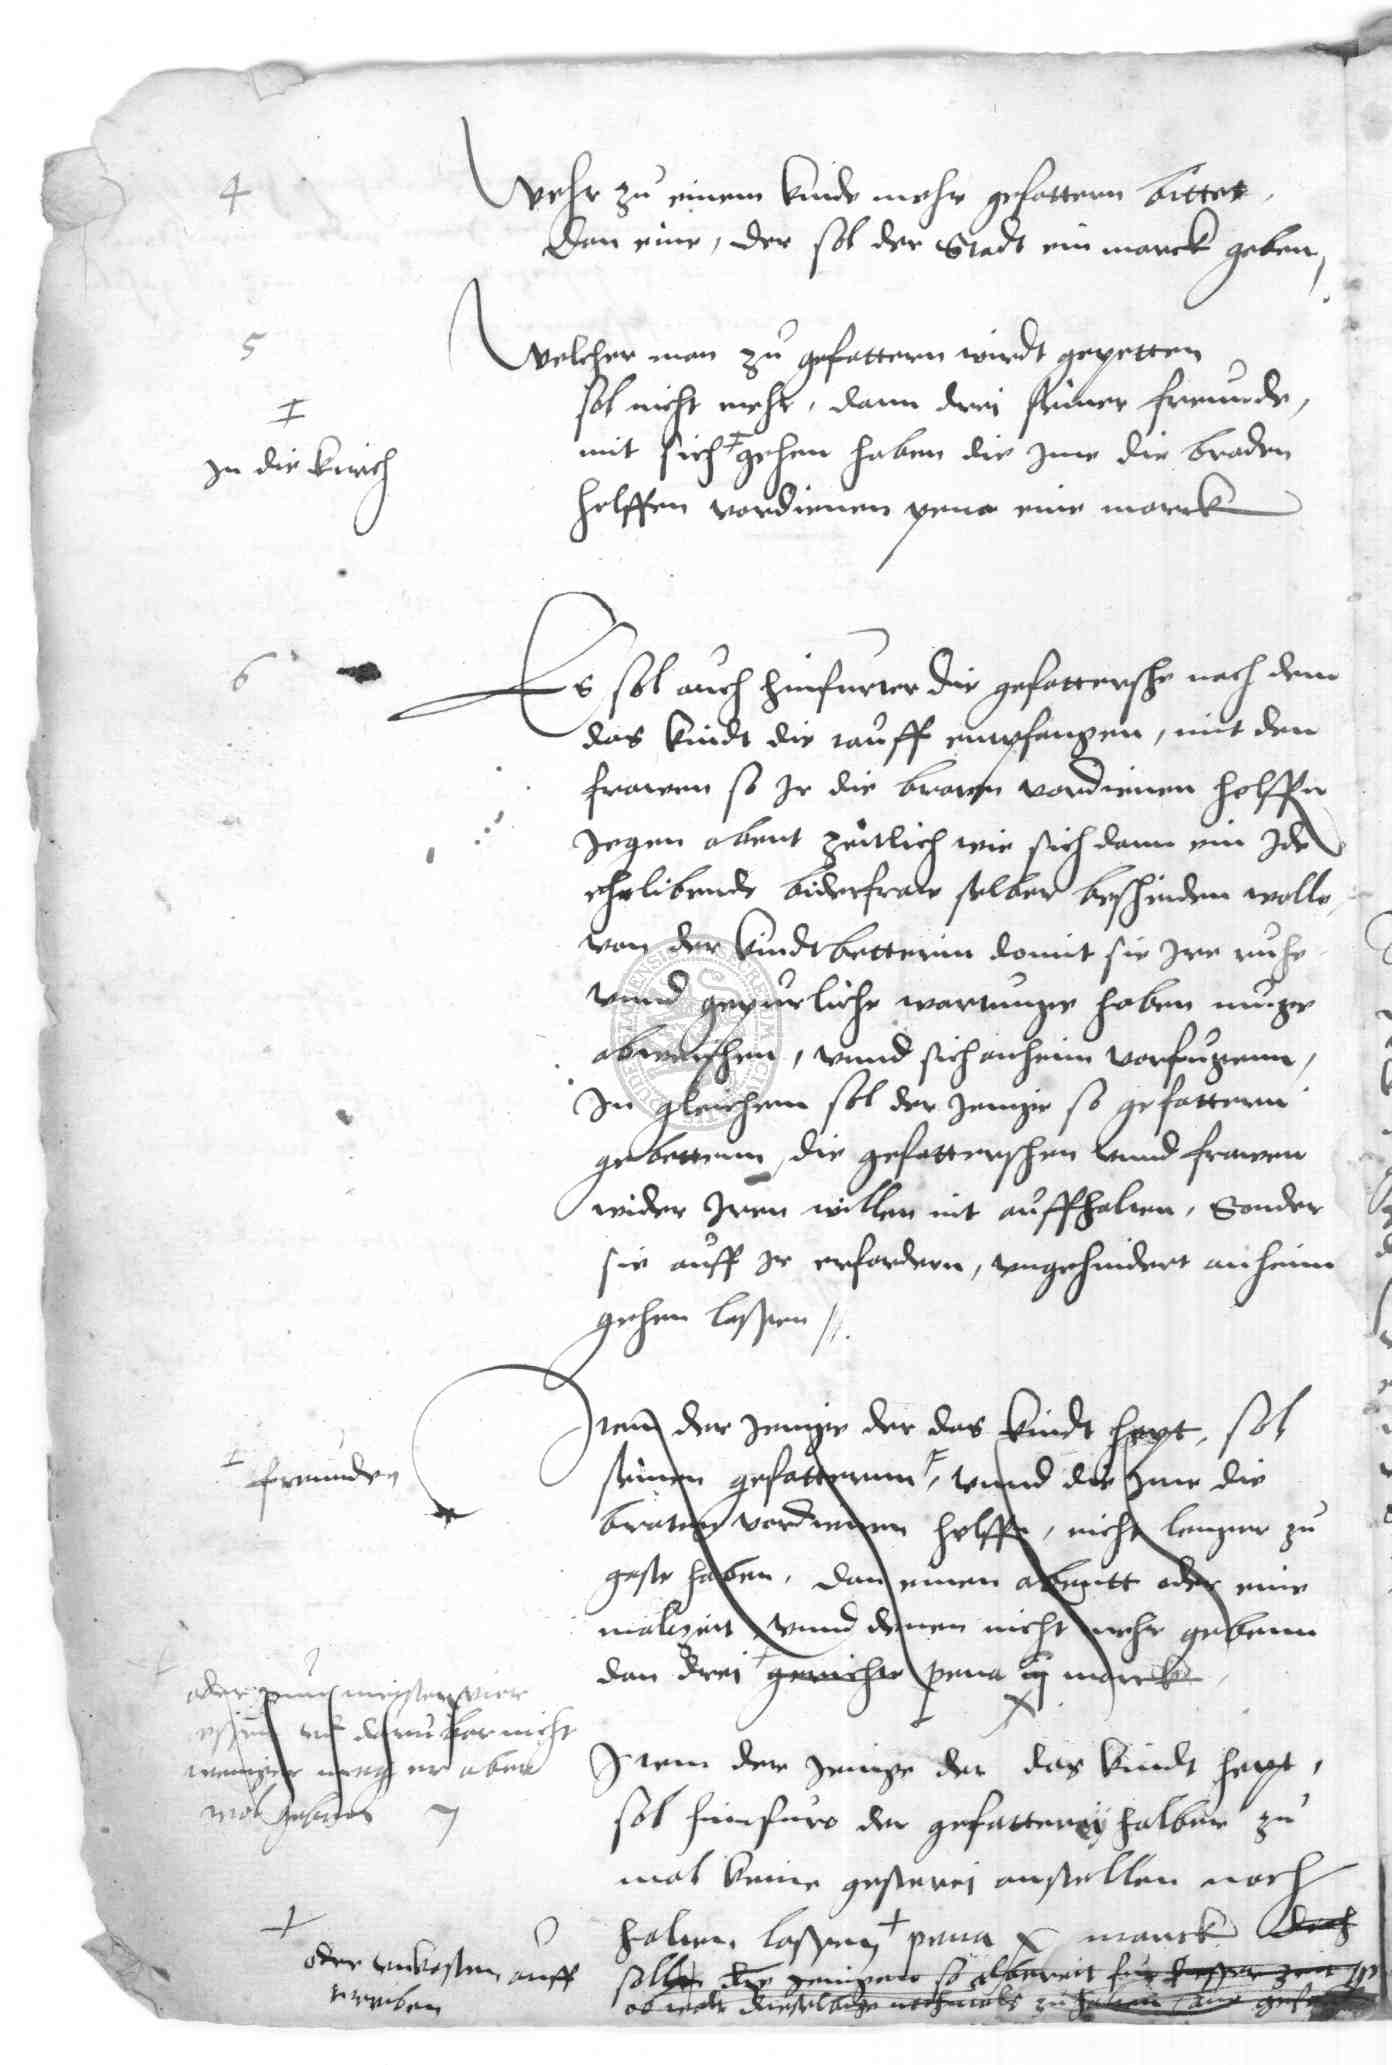 4
Wehr zu einem kinde mehr gefattern bittet,
dan eine, der sol der Stadt ein marck geben,
5
Welcher man zu gefattern wirdt gepetten
sol nicht mehr, dann drei seiner freunde,
mit sich ‡ gehen haben die Ime die braden
‡ In die kirch
helffen vordienen pena eine marck
6
Es sol auch hinfurter die gefattersche nach dem
das kindt die tauff empfangen, mit den
frawen so Ir die braten vordienen helffen
Jegen abent zeitlich wie sich dann ein Ide
ehrlibende biderfraw selber bescheiden wolle,
von der kindtbetterin domit sie Ire ruhe
vnnd gepurliche wartunge haben muge
abweichen, vnnd sich anheim vorfugenn,
In gleichem sol der Jenige so gefattern
gebettenn, die gefatterschen vnnd frawen
wider Iren willen nit auffhalten, Sonder
sie auff Ir erfordern, vngehindert anheim
gehen lassen //.
Item der Jenige der das kindt hept, sol
seinen gefatternn ‡, vnnd die Ime die
‡ freunden
braten vordienen helffen, nicht lenger zu
geste haben, dan einen abentt oder eine
malzeit vnnd denen nicht mehr gebenn
dan drei + gerichte pena iij marck
+ oder zum meisten vier
essen vnd daruber nicht
weniger mag er aber
wol geben
Item der Jenige der das kindt hept,
sol hinfuro der gefatterey halber zu
mal keine gesterei anstellen noch
halten lassen + pena x marck doch
+ oder vnkosten auff
wenden
sollen die Jenigen so albereit